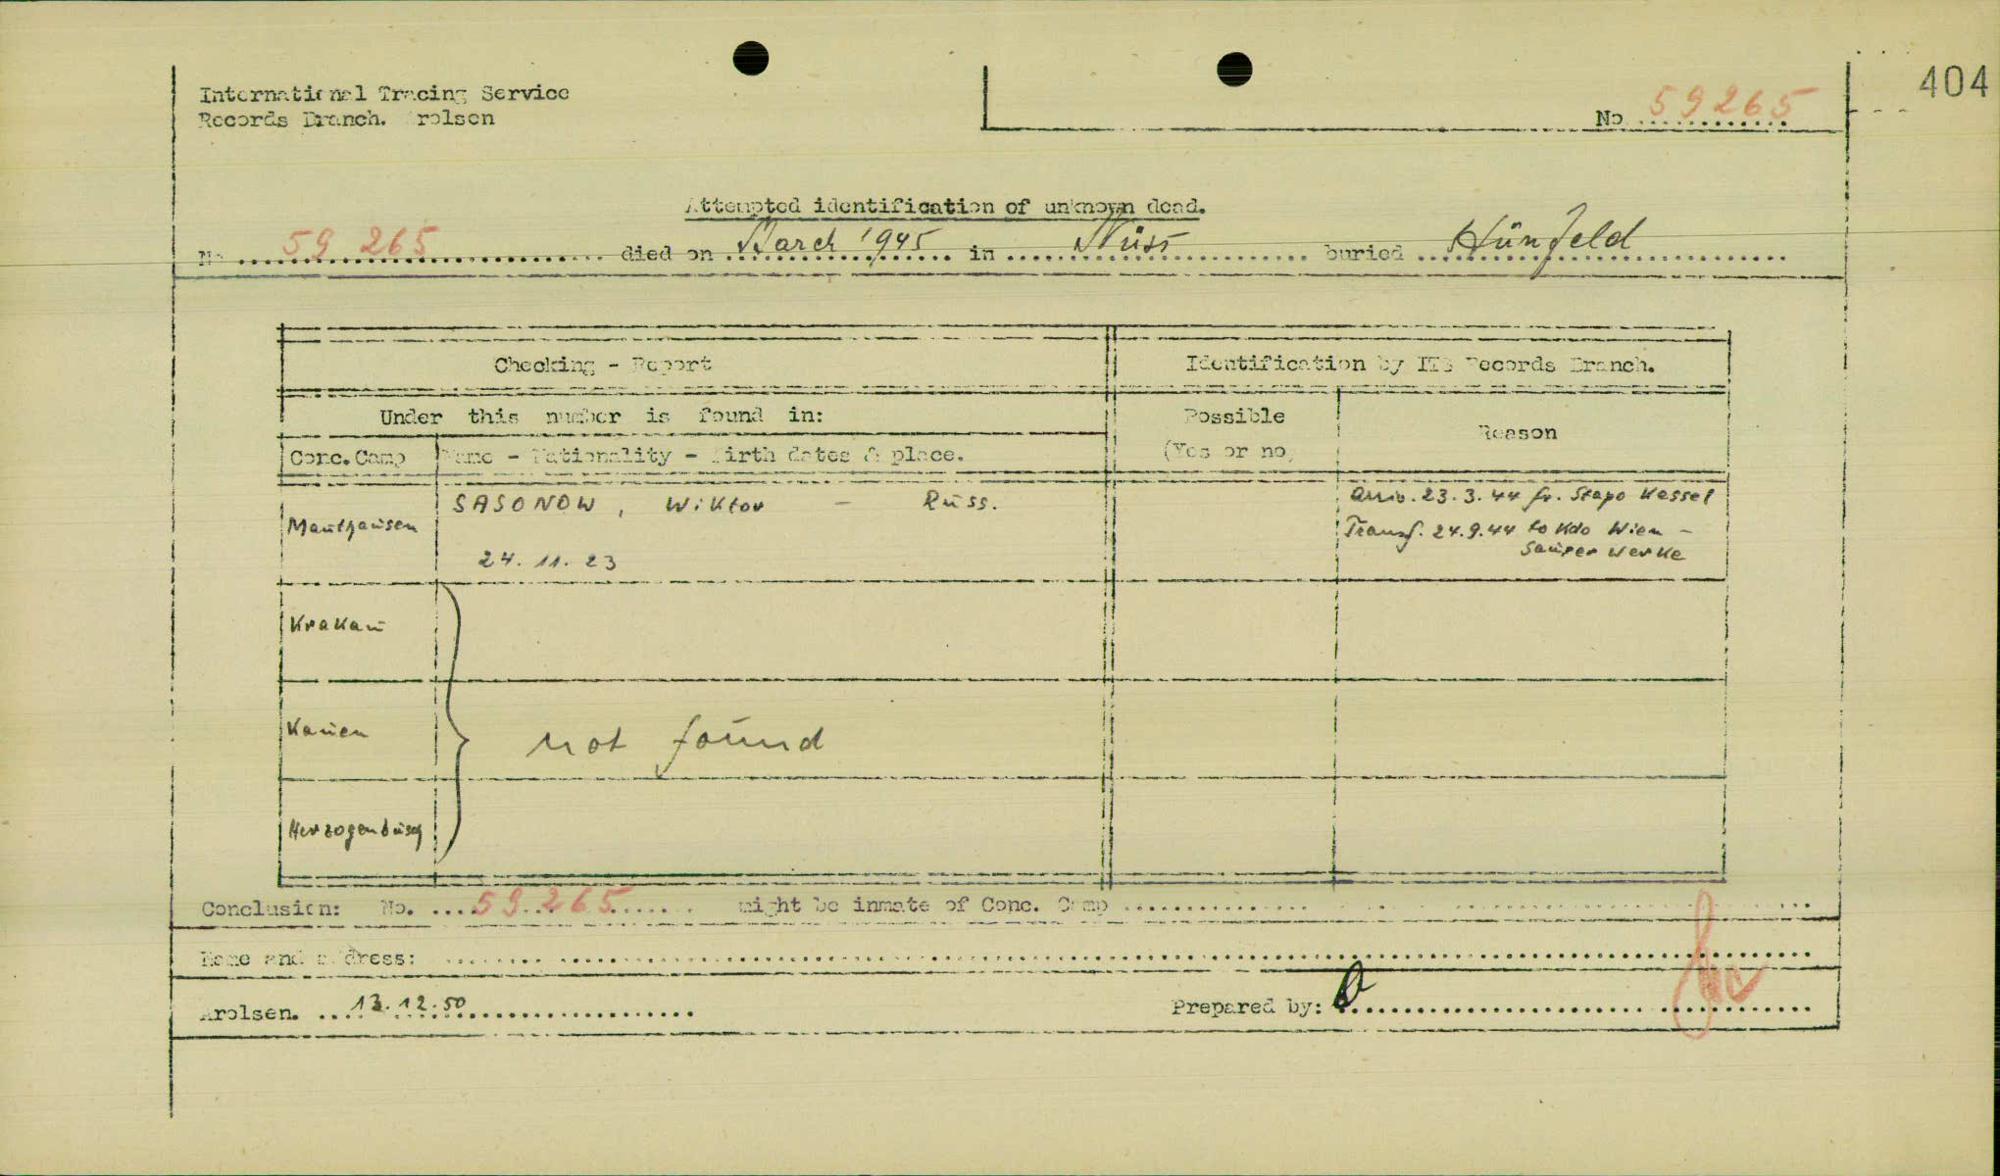 404
International Tracing Service
Records Branch. Arolsen
No 59265
Attempted identification of unknown dead.
No 59 265 died on March 1945 in Nüst buried Hünfeld
Checking - Report
Identification by ITS Records Branch.
Under this number is found in:
Possible
(Yes or no)
Reason
Conc. Camp
Name - Nationality - Birth dates & place.
Mauthausen
SASONOW, Wiktor - Russ.
24. 11. 23
arriv. 23. 3. 44 fr. Stapo Kassel
Transf. 24.9.44 to Kdo Wien -
Saurer Werke
Krakau
Kauen
not found
Herzogenbusch
Conclusion: No. 59265 might be inmate of Conc. Camp
Name and address:
Arolsen. 13.12.50
Prepared by: